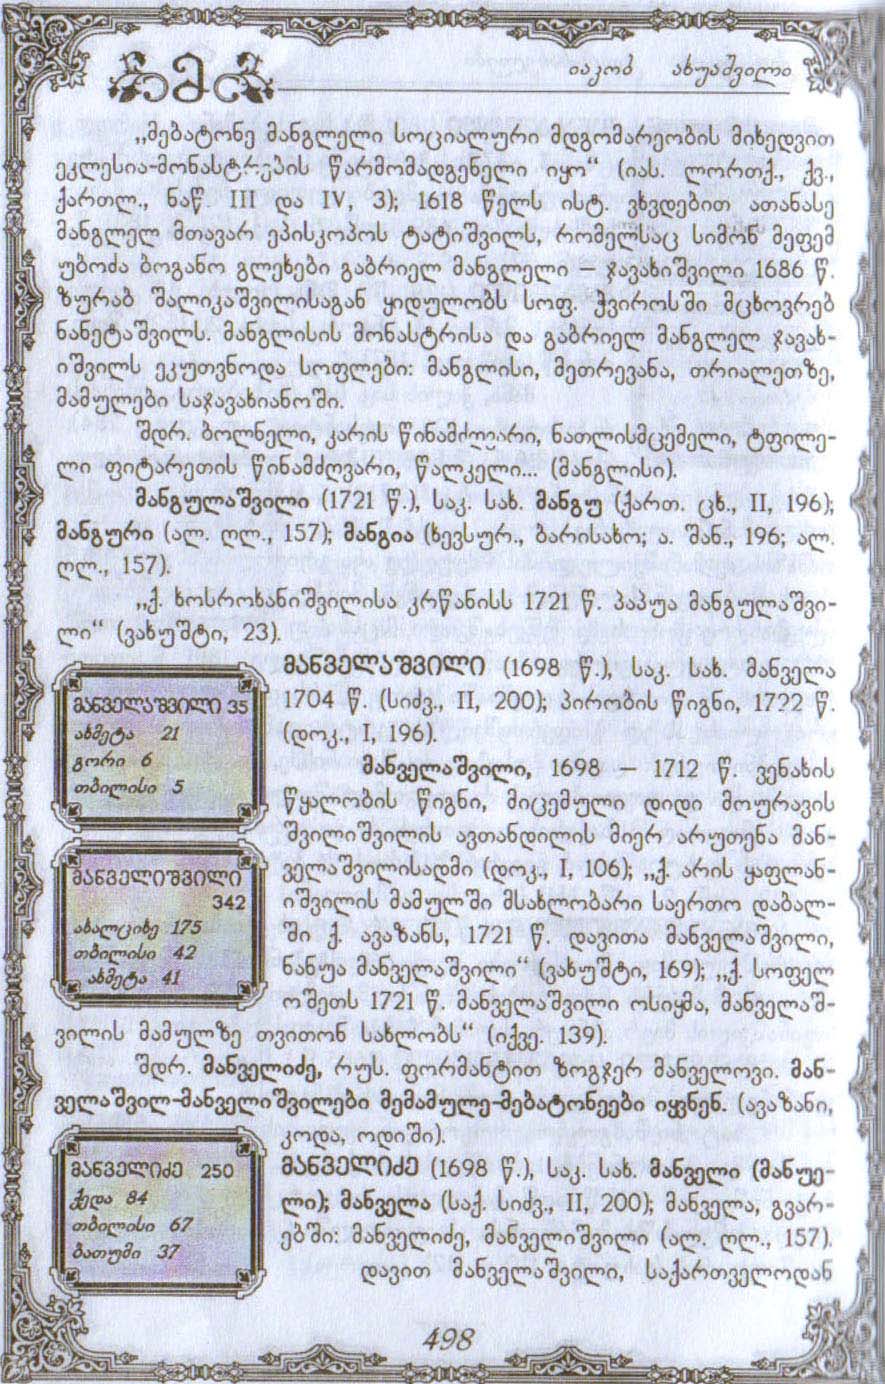 მ
იაკობ ახუაშვილი
„მებატონე მანგლელი სოციალური მდგომარეობის მიხედვით
ეკლესია-მონასტრების წარმომადგენელი იყო“ (იას. ლორთქ., ქვ.,
ქართლ., ნაწ. III და IV, 3); 1618 წელს ისტ. ვხვდებით ათანასე
მანგლელ მთავარ ეპისკოპოს ტატიშვილს, რომელსაც სიმონ მეფემ
უბოძა ბოგანო გლეხები გაბრიელ მანგლელი – ჯავახიშვილი 1686 წ.
ზურაბ შალიკაშვილისაგან ყიდულობს სოფ. ჭვიროსში მცხოვრებ
ნანეტაშვილს. მანგლისის მონასტრისა და გაბრიელ მანგლელ ჯავახ-
იშვილს ეკუთვნოდა სოფლები: მანგლისი, მეთრევანა, თრიალეთზე,
მამულები საჯავახიანოში.
შდრ. ბოლნელი, კარის წინამძღვარი, ნათლისმცემელი, ტფილე-
ლი ფიტარეთის წინამძღვარი, წალკელი... (მანგლისი).
მანგულაშვილი (1721 წ.), საკ. სახ. მანგუ (ქართ. ცხ., II, 196);
მანგური (ალ. ღლ., 157); მანგია (ხევსურ., ბარისახო; ა. შან., 196; ალ.
ღლ., 157).
„ქ. ხოსროხანიშვილისა კრწანისს 1721 წ. პაპუა მანგულაშვი-
ლი“ (ვახუშტი, 23).
მანველაშვილი 35
ახმეტა 21
გორი 6
თბილისი 5
მანველიშვილი
342
ახალციხე 175
თბილისი 42
ახმეტა 41
მანველაშვილი (1698 წ.), საკ. სახ. მანველა
1704 წ. (სიძვ., II, 200); პირობის წიგნი, 1722 წ.
(დოკ., I, 196).
მანველაშვილი, 1698 – 1712 წ. ვენახის
წყალობის წიგნი, მიცემული დიდი მოურავის
შვილიშვილის ავთანდილის მიერ არუთენა მან-
ველაშვილისადმი (დოკ., I, 106); „ქ. არის ყაფლან-
იშვილის მამულში მსახლობარი საერთო დაბალ-
ში ქ. ავაზანს, 1721 წ. დავითა მანველაშვილი,
ნანუა მანველაშვილი“ (ვახუშტი, 169); „ქ. სოფელ
ოშეთს 1721 წ. მანველაშვილი ოსიყმა, მანველაშ-
ვილის მამულზე თვითონ სახლობს“ (იქვე. 139).
შდრ. მანველიძე, რუს. ფორმანტით ზოგჯერ მანველოვი. მან-
ველაშვილ-მანველიშვილები მემამულე-მებატონეები იყვნენ. (ავაზანი,
კოდა, ოდიში).
მანველიძე 250
ქედა 84
თბილისი 67
ბათუმი 37
მანველიძე (1698 წ.), საკ. სახ. მანველი (მანუე-
ლი); მანველა (საქ. სიძვ., II, 200); მანველა, გვარ-
ებში: მანველიძე, მანველიშვილი (ალ. ღლ., 157).
დავით მანველაშვილი, საქართველოდან
498